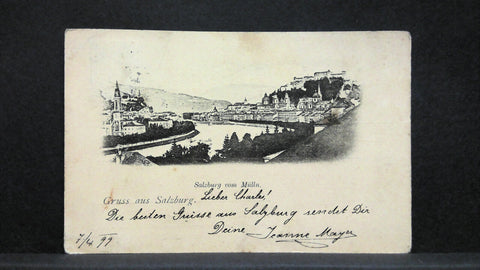 Salzburg vom Mülln.
Gruss aus Salzburg. Lieber Charles!
Die besten Grüsse aus Salzburg sendet Dir
Deine Jeanne Mayer
7/4 99